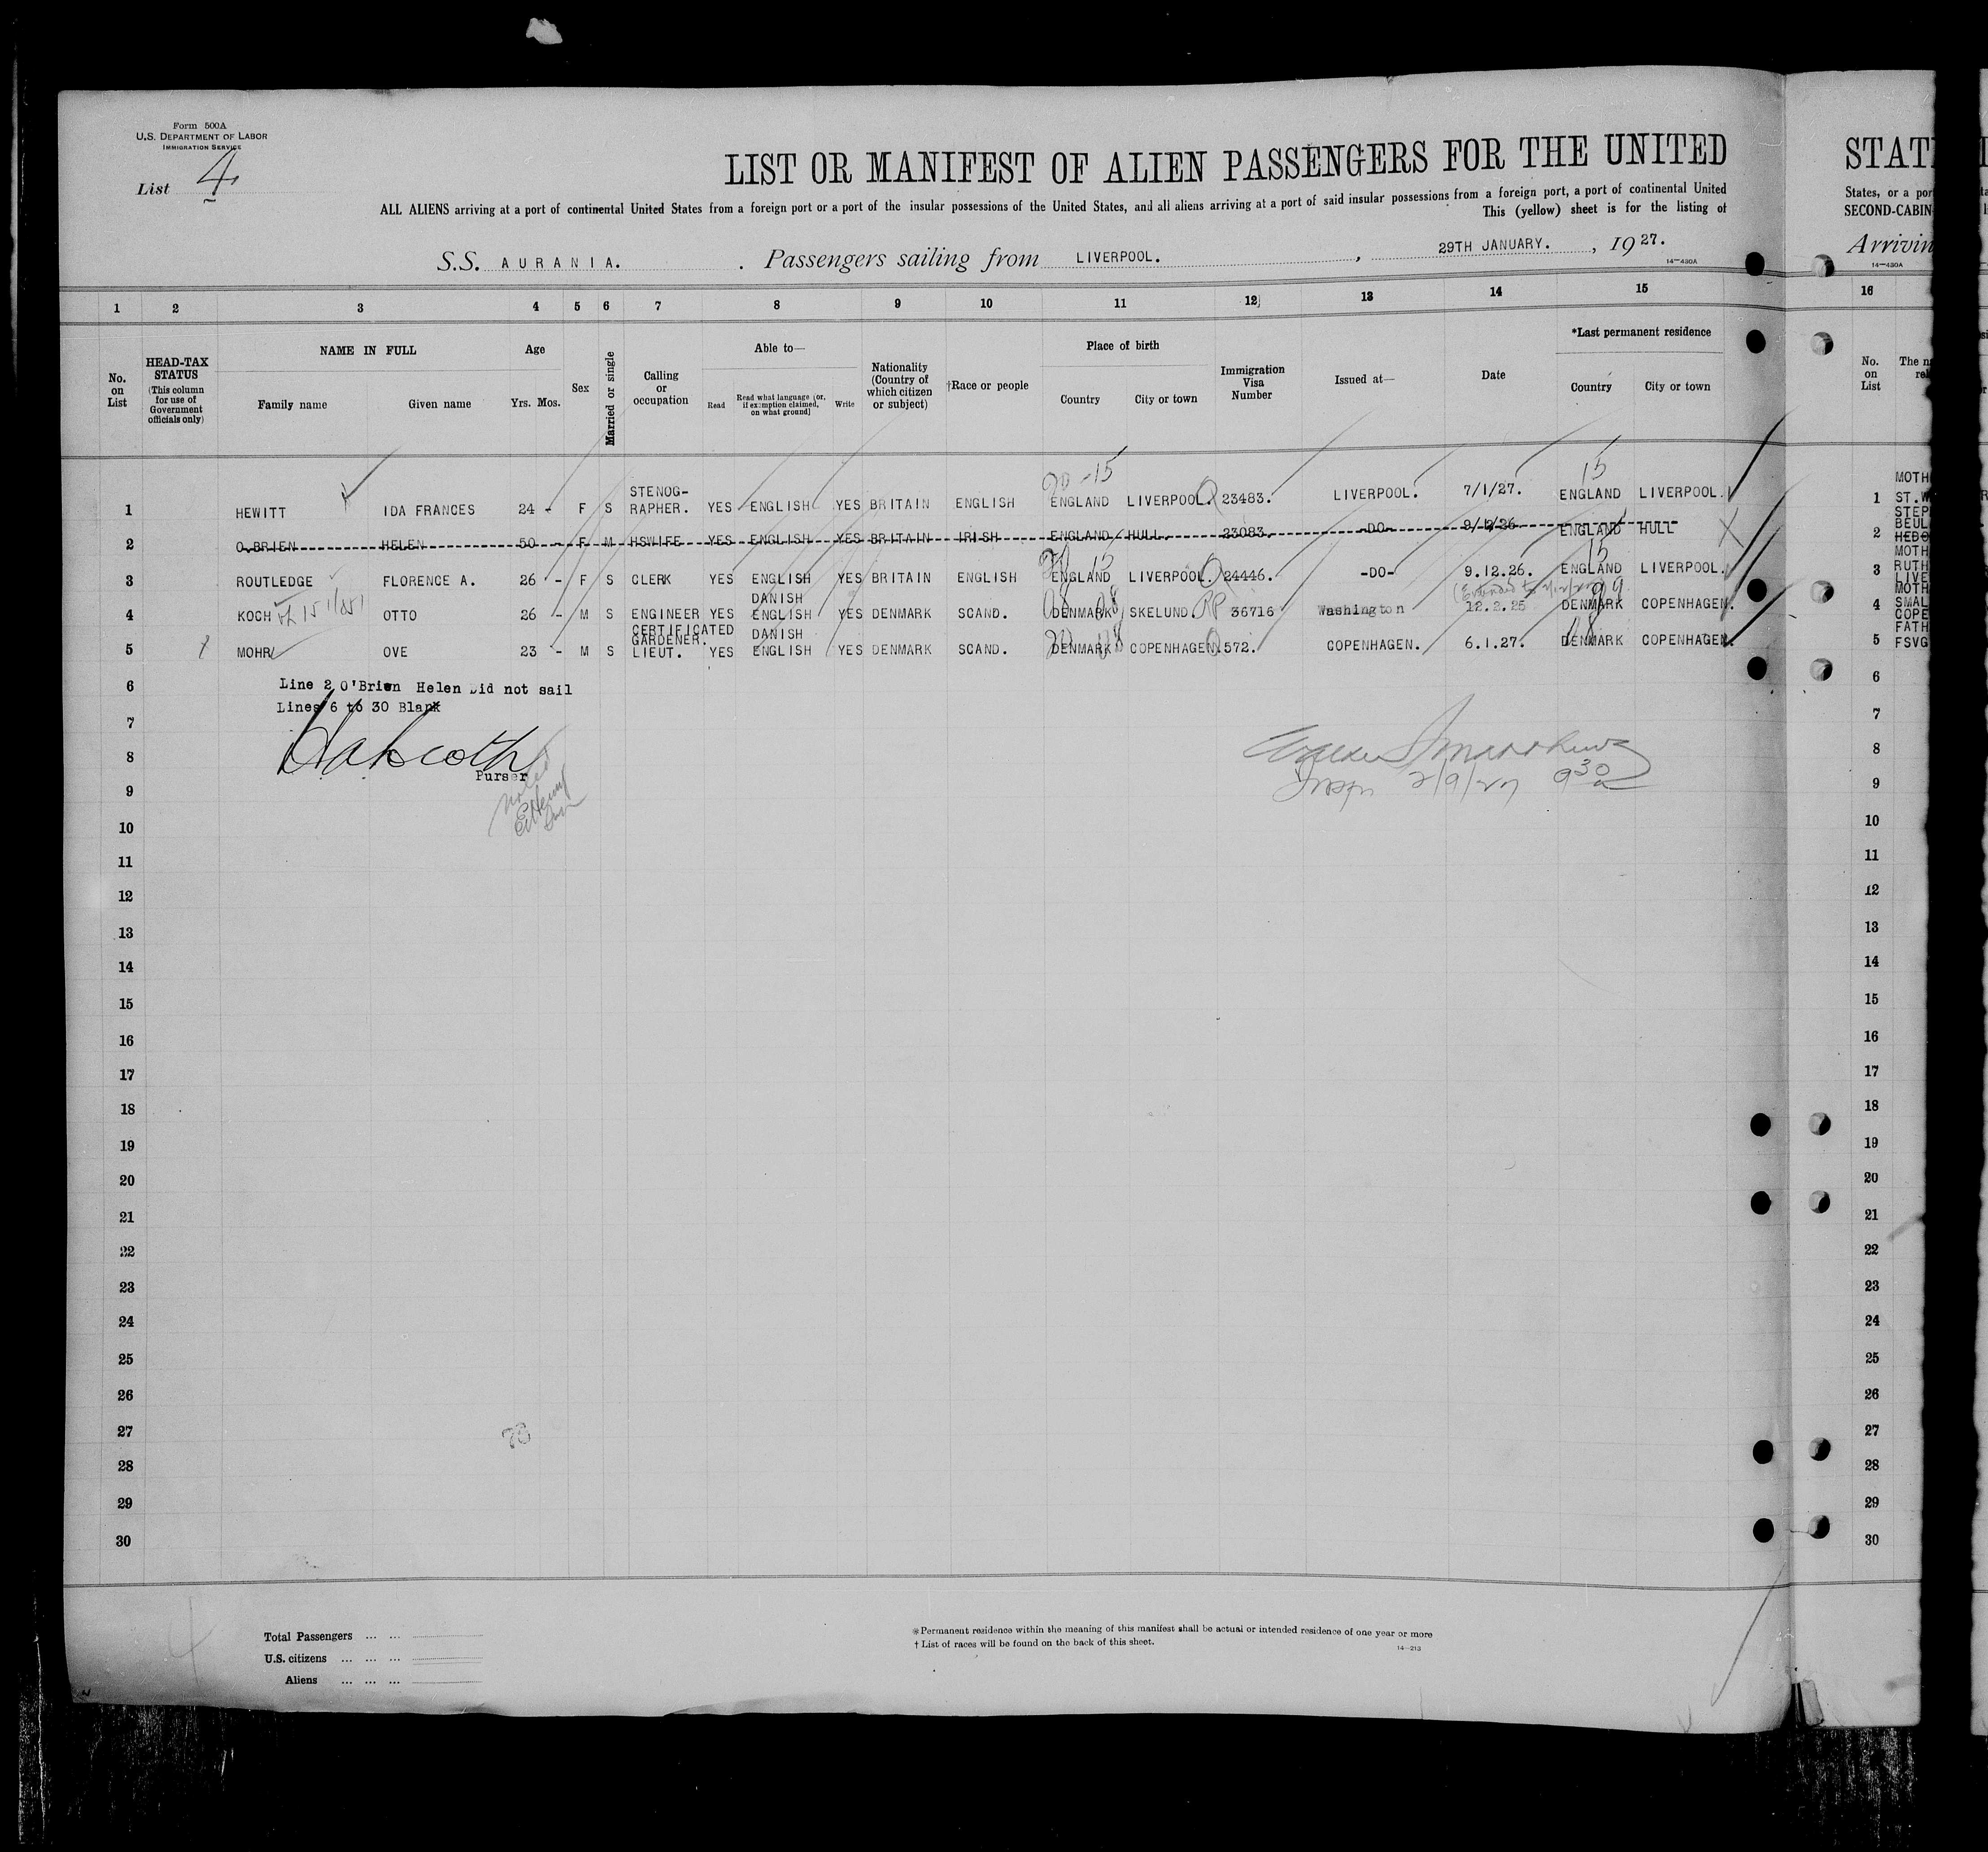 Form 500A
U.S. DEPARTMENT OF LABOR
IMMIGRATION SERVICE
List 4
LIST OR MANIFEST OF ALIEN PASSENGERS FOR THE UNITED
ALL ALIENS arriving at a port of continental United States from a foreign port or a port of the insular possessions of the United States, and all aliens arriving at a port of said insular possessions from a foreign port, a port of continental United
This (yellow) sheet is for the listing of
S.S. AURANIA. Passengers sailing from LIVERPOOL., 29TH JANUARY., 1927.
14—430A
1 2 3 4 5 6 7 8 9 10 11 12 13 14 15
No. on List
HEAD-TAX STATUS
(This column for use of Government officials only)
NAME IN FULL
Family name Given name
Age
Yrs. Mos.
Sex
Married or single
Calling or occupation
Able to—
Read Read what language (or, if exemption claimed, on what ground) Write
Nationality (Country of which citizen or subject)
†Race or people
Place of birth
Country City or town
Immigration Visa Number
Issued at—
Date
*Last permanent residence
Country City or town
20-15 15
1 HEWITT IDA FRANCES 24 - F S STENOG-RAPHER. YES ENGLISH YES BRITAIN ENGLISH ENGLAND LIVERPOOL. 23483. LIVERPOOL. 7/1/27. ENGLAND LIVERPOOL.
2 O.BRIEN HELEN 50 - F M HSWIFE YES ENGLISH YES BRITAIN IRISH ENGLAND HULL. 23083. -DO- ENGLAND HULL
15 15
3 ROUTLEDGE FLORENCE A. 26 - F S CLERK YES ENGLISH YES BRITAIN ENGLISH ENGLAND LIVERPOOL. 24446. -DO- 9.12.26. ENGLAND LIVERPOOL.
4 KOCH OTTO 26 - M S ENGINEER YES DANISH ENGLISH YES DENMARK SCAND. DENMARK SKELUND. 36716 Washington 12.2.25 DENMARK COPENHAGEN.
5 MOHR OVE 23 - M S CERTIFICATED GARDENER. LIEUT. YES DANISH ENGLISH YES DENMARK SCAND. DENMARK COPENHAGEN 572. COPENHAGEN. 6.1.27. DENMARK COPENHAGEN.
6
Line 2 O'Brien Helen Did not sail
Lines 6 to 30 Blank
7
8
Purser
9
2/9/27 9 30 a
10
11
12
13
14
15
16
17
18
19
20
21
22
23
24
25
26
27
28
29
30
Total Passengers ... ...
U.S. citizens ... ... ...
Aliens ... ... ...
*Permanent residence within the meaning of this manifest shall be actual or intended residence of one year or more
† List of races will be found on the back of this sheet.
14—213
STAT
States, or a por
SECOND-CABIN
Arrivin
14—430A
16
No. on List
The na
rel
1
MOTH
ST.W
STEP
2
BEUL
HEDO
MOTH
3
RUTH
LIVE
MOTH
4
SMAL
COPE
FATH
5
FSVG
6
7
8
9
10
11
12
13
14
15
16
17
18
19
20
21
22
23
24
25
26
27
28
29
30